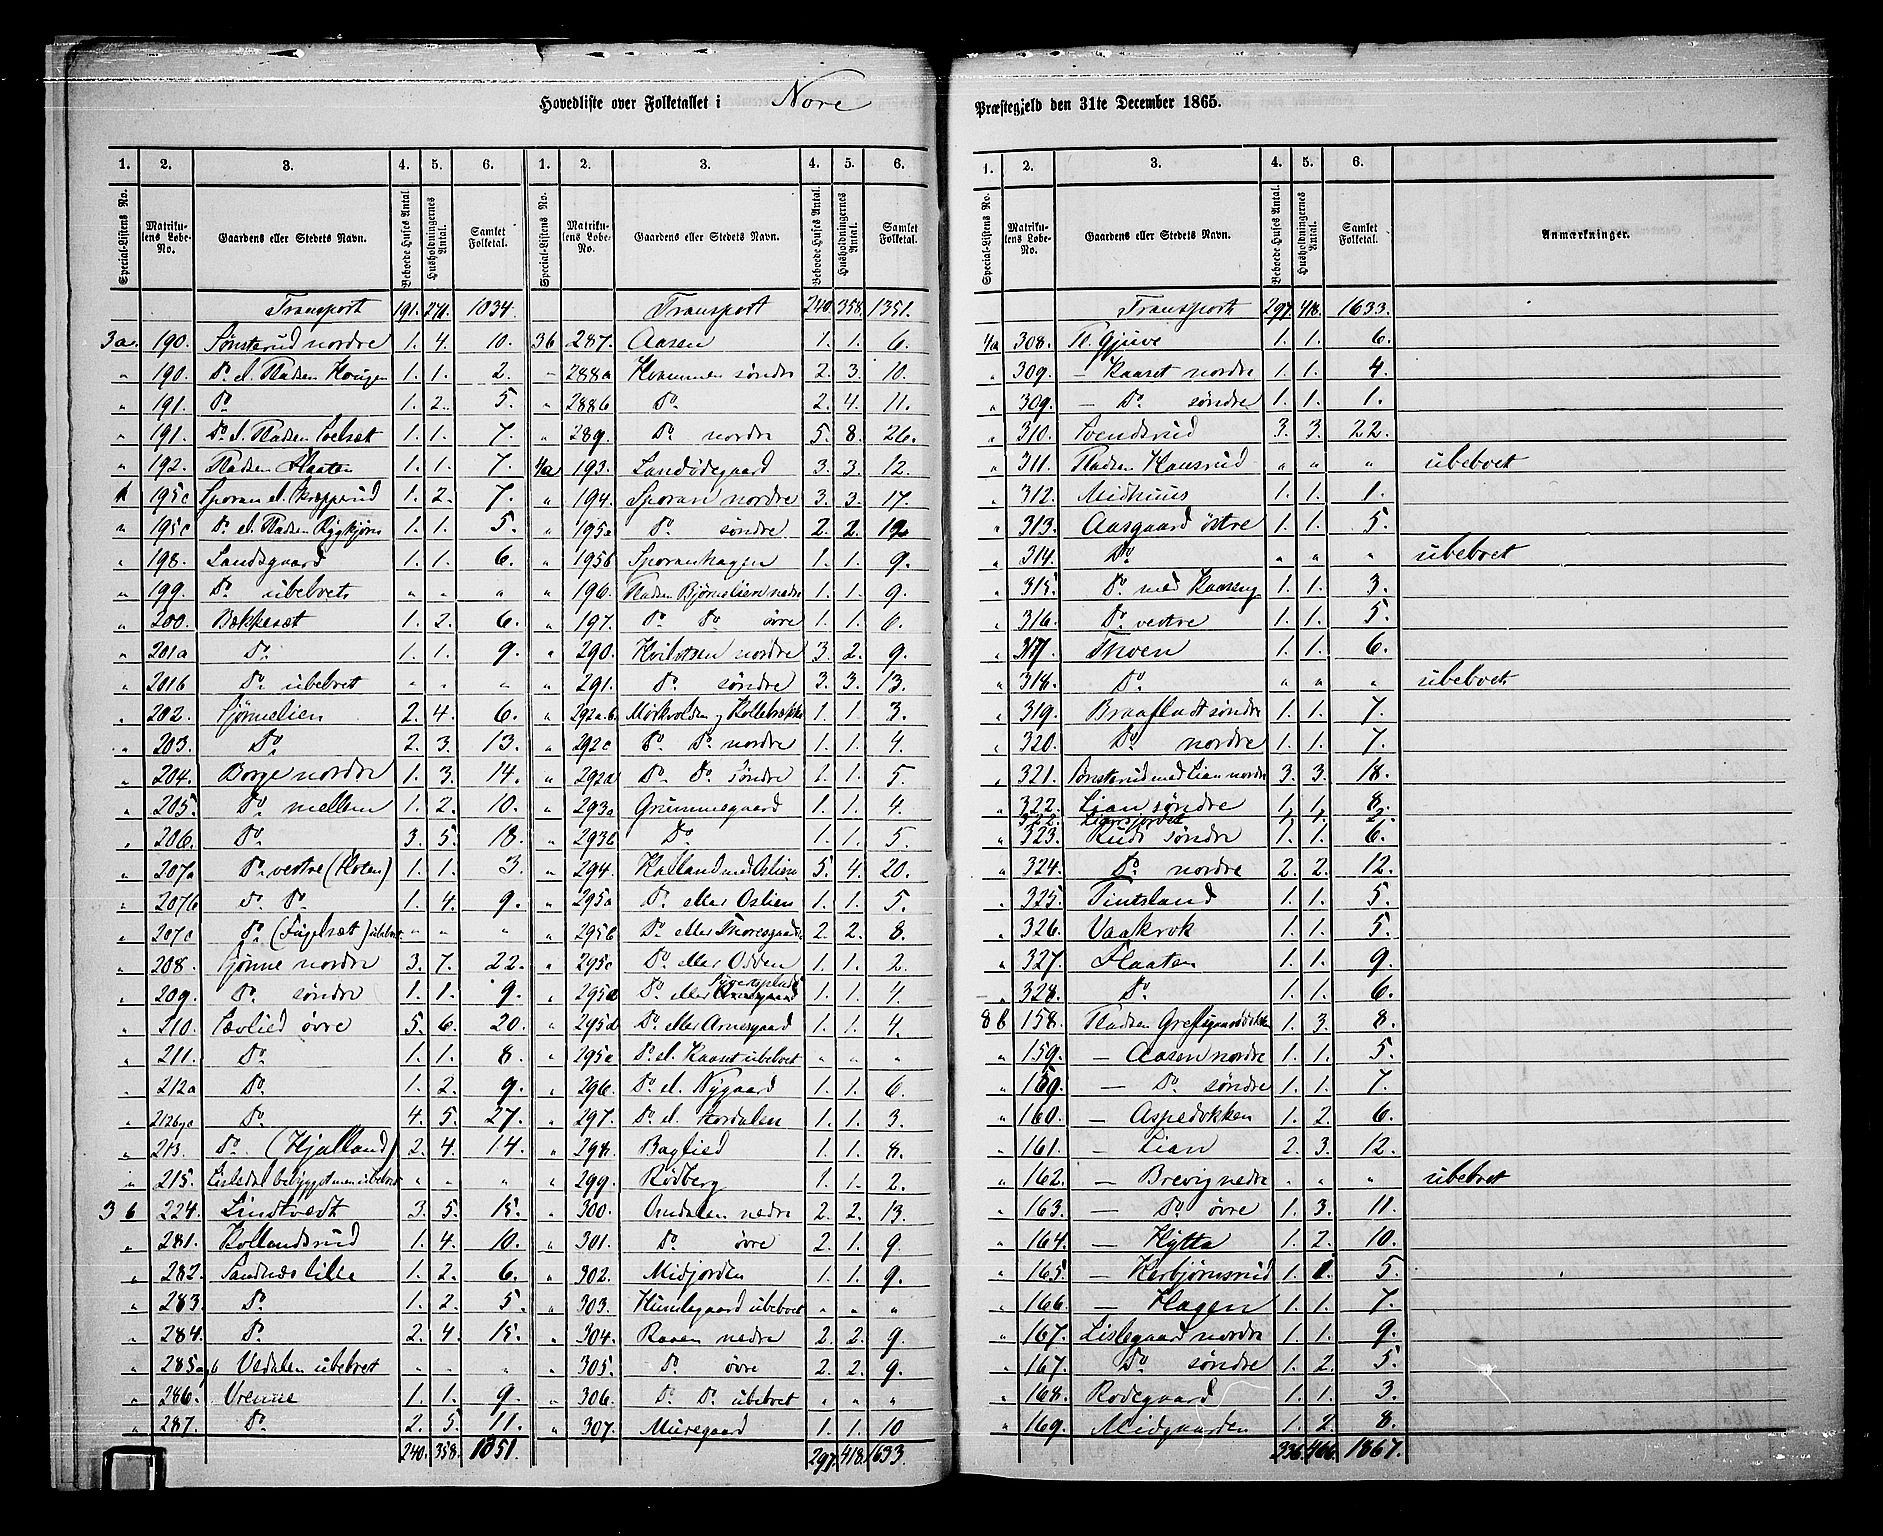 Hovedliste over Folketallet i Nore Præstegjeld den 31te December 1865.
1. 2. 3. 4. 5. 6. 1. 2. 3. 4. 5. 6.
Special-Listens No. Matrikulens Løbe-No. Gaardens eller Stedets Navn. Beboede Huses Antal. Husholdningernes Antal. Samlet Folketal. Special-Listens No. Matrikulens Løbe-No. Gaardens eller Stedets Navn. Beboede Huses Antal. Husholdningernes Antal. Samlet Folketal.
Transport 191. 1034.
3a. 190. Sønsterud nordre 1. 4. 10.
" 190. Do. el. Pladsen Haugen 1. 1. 2.
" 191. Do 1. 2. 5.
" 191. Do. el. Pladsen 1. 1. 7.
" 192. Pladsen Flaaten 1. 1. 7.
195c Sporan el. Skrepperud 1. 2. 7.
" 195c Do. el. Pladsen 1. 1. 5.
" 198. Landsgaard 1. 1. 6.
" 199. Do. ubeboet " " "
" 200. Bækkesæt 1. 2. 6.
" 201a Do. 1. 1. 9.
" 201b Do. ubeboet " " "
" 202. Bjørnelien 2. 4. 6.
" 203. Do. 2. 3. 13.
" 204. Borge nordre 1. 3. 14.
" 205. Do mellem 1. 2. 10.
" 206. Do. 3. 5. 18.
" 207a Do. vestre (Kolen) 1. 1. 3.
" 207b Do. 1. 4. 9.
" 207c Do. (Fugelsæt) ubeboet " " "
" 208. Gjønne nordre 3. 7. 22.
" 209. Do. søndre 1. 1. 9.
" 210. Sævlied øvre 5. 6. 20.
" 211. Do. 1. 1. 8.
" 212a Do. 1. 2. 9.
" 212b,c Do. 4. 5. 27.
" 213. Do. (Hjalland) 2. 4. 14.
" 215. Lislsdal bebygget men ubeboet " " "
3b 224. Lindtvedt 3. 5. 15.
" 281. Kollandsrud 1. 4. 10.
" 282. Sandnes lille 1. 2. 6.
" 283. Do. 1. 2. 5.
" 284. Do. 2. 4. 15.
" 285a,b Vedalen ubeboet " " "
" 286. Vrenne 1. 1. 9.
" 287. Do. 2. 5. 11.
240. 358. 1351.
Transport 240. 358. 1351.
3b 287. Aasen 1. 1. 6.
288a Kvammen søndre 2. 3. 10.
" 288b Do. 2. 4. 11.
" 289. Do. nordre 5. 8. 26.
4a 193. Landødegaard 3. 3. 12.
" 194. Sporan nordre 3. 3. 17.
" 195a Do. søndre 2. 2.
" 195b Sporanhagen 1. 1. 9.
" 196. Pladsen Bjørnelien nedre 1. 1. 9.
" 197. Do. Do. øvre 1. 1. 6.
" 290. Hvilsteen nordre 3. 2. 9.
" 291. Do. søndre 3. 3. 13.
" 292a.b. Mørkvolden og Kollebrække 1. 1. 3.
" 292c Do. Do. nordre 1. 1. 4.
" 292d Do. Do. søndre 1. 1. 5.
" 293a Grimmegaard 1. 1. 4.
" 293b Do 1. 1. 5.
" 294. Kolland med Oslien 5. 4. 20.
" 295a Do. eller Oslien 1. 1. 5.
" 295b Do. eller Thoresgaard 2. 2. 8.
" 295c Do. eller Odden 1. 1. 2.
" 295d Do. eller 1. 1. 4.
" 295d Do. eller Arnesgaard 1. 1. 4.
" 295e Do. el. Kaaset ubeboet " " "
" 296. Do. el. Nygaard 1. 1. 6.
" 297. Do. el. Stordalen 1. 1. 3.
" 298. Baglied 1. 1. 8.
" 299. Rødberg 1. 1. 2.
" 300. Omdalen nedre 2. 2. 13.
" 301. Do. øvre 2. 1. 9.
" 302. Midjorden 1. 1. 9.
" 303. Hundegaard ubeboet " " "
" 304. Raaen nedre 2. 2. 9.
" 305. Do. øvre 2. 2. 9.
" 306. Do. Do. ubeboet " " "
" 307. Muregaard 1. 1. 10
297. 418. 1633.
1. 2. 3. 4. 5. 6.
Special-Listens No. Matrikulens Løbe-No. Gaardens eller Stedets Navn. Beboede Huses Antal. Husholdningernes Antal. Samlet Folketal. Anmærkninger.
Transport 297. 418. 1633.
4a 308. Pl. Gjuve 1. 1. 6.
" 309. — Kaaset nordre 1. 1. 4.
" 309. — Do søndre 1. 1. 1.
" 310. Svendsrud 3. 3. 22.
" 311. Pladsen Hansrud " " " ubeboet
" 312. Midhuus 1. 1. 1.
" 313. Aasgaard østre 1. 1. 5.
" 314. Do " " " ubeboet
" 315. Do med Kaaseng 1. 1. 3.
" 316. Do vestre 1. 1. 5.
" 317. Thoen 1. 1. 6.
" 318. Do. " " " ubeboet
" 319. Braafladt søndre 1. 1. 7.
" 320. Do nordre 1. 1. 7.
" 321. Sønsterud med Lian nordre 3. 3. 18.
" 322. Lian søndre 1. 1. 8.
322. Liansjordet 1. 1. 2.
" 323. Rudi søndre 1. 1. 6.
" 324. Do nordre 2. 2. 12.
" 325. Tintsland 1. 1. 5.
" 326. Vaakrok 1. 1. 5.
" 327. Flaaten 1. 1. 9.
" 328. Do 1. 1. 6.
8b 158. Pladsen 1. 3. 8.
" 159. — Aasen nordre 1. 1. 5.
" 159. — Do søndre 1. 1. 7.
" 160. — Aspedokken 1. 2. 6.
" 161. — Lian 2. 3. 12.
" 162. — Brevig nedre " " " ubeboet
" 163. — Do øvre 1. 3. 11.
" 164. — Hytta 1. 2. 10.
" 165. — Herbjørnsrud 1. 1. 5.
" 166. — Hagen 1. 1. 7.
" 167. Lislegaard nordre 1. 1. 9.
" 167. Do søndre 1. 2. 5.
" 168. Rodegaard 1. 1. 3.
" 169. Midgaarden 1. 2. 8.
336. 466. 1867.